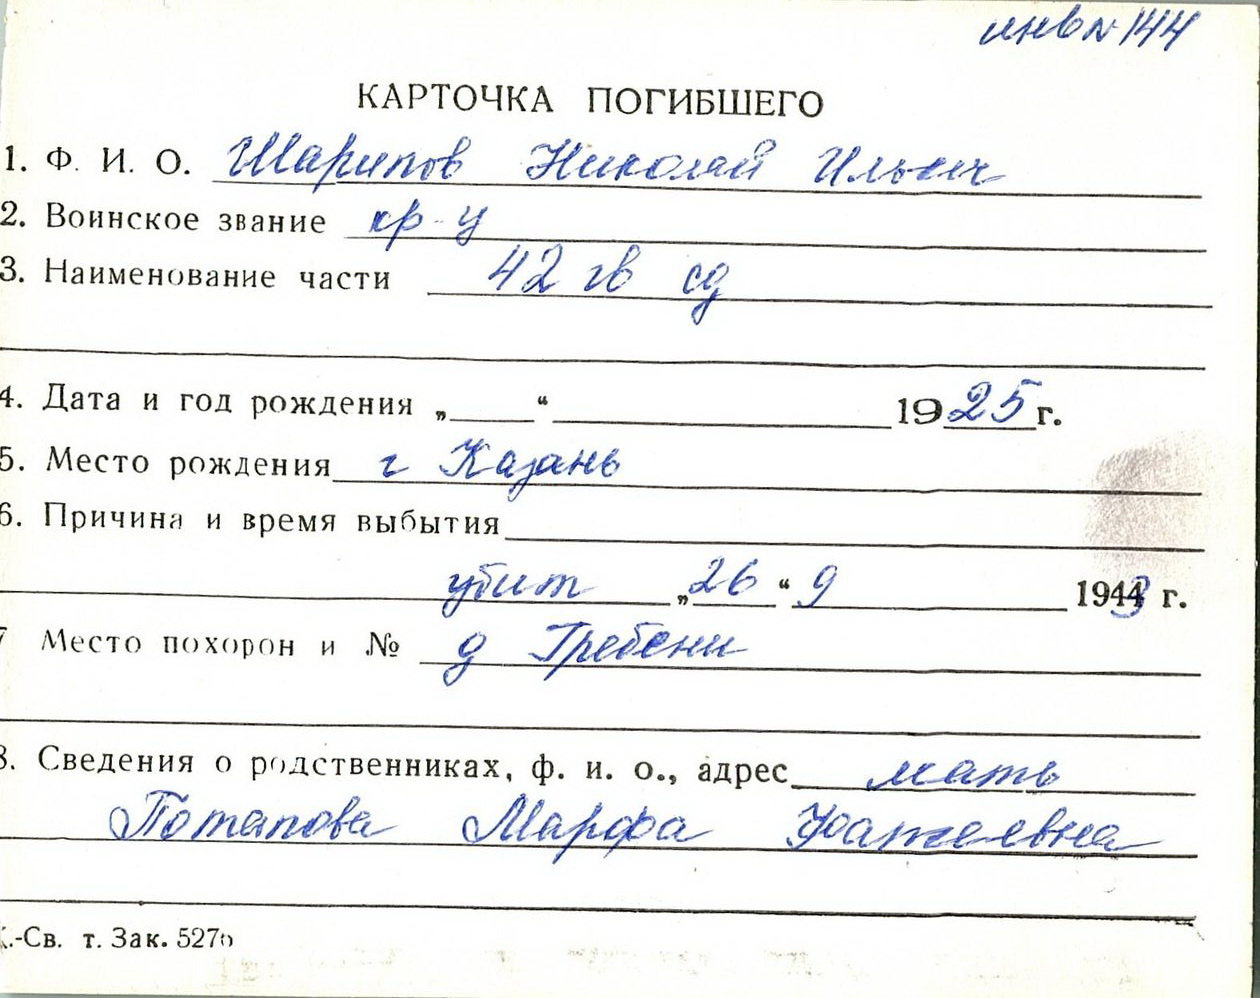 инв № 144
КАРТОЧКА ПОГИБШЕГО
1. Ф. И. О. Шарипов Николай Ильич
2. Воинское звание кр-ц
3. Наименование части 42 гв сд
4. Дата и год рождения „ “ 1925 г.
5. Место рождения г Казань
6. Причина и время выбытия
убит „26“ 9 1943 г.
7 Место похорон и № д Гребени
8. Сведения о родственниках, ф. и. о., адрес мать
Потапова Марфа
.-Св. т. Зак. 527